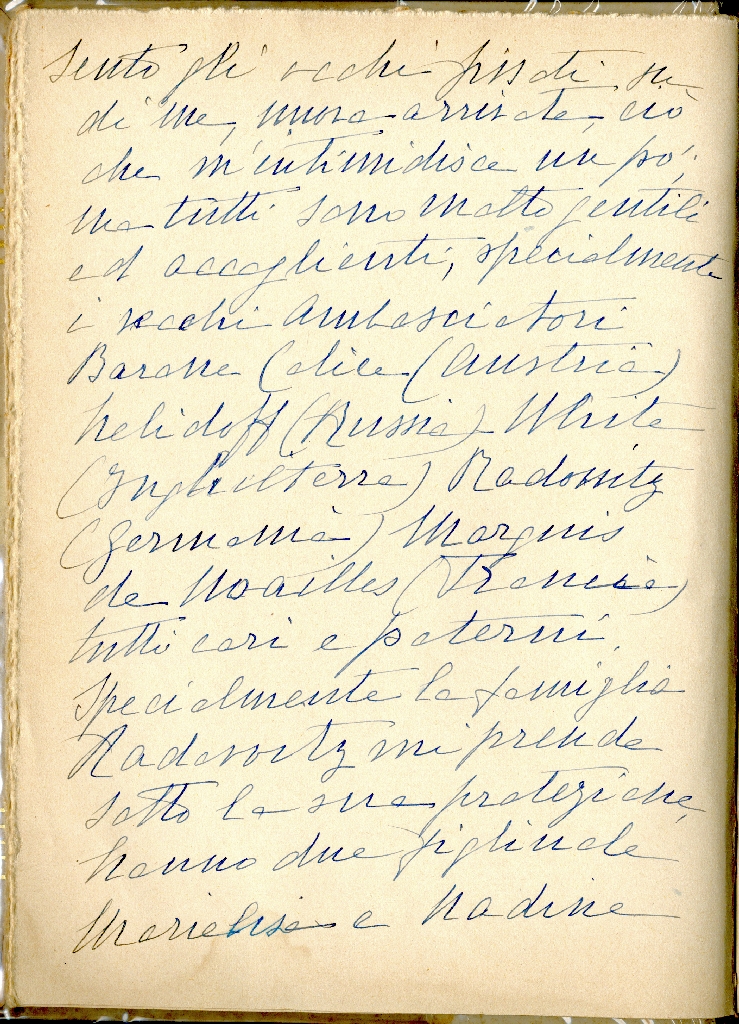 sento gli occhi fissati su
di me, nuova arrivata, ciò
che m'intimidisce un po',
ma tutti sono molto gentili
ed accoglienti, specialmente
i vecchi Ambasciatori
Barone Calice (Austria)
Nelidoff (Russia) White
(Inghilterra) Radowitz
(Germania) Marquis
de Noailles (Francia)
tutti cari e paterni,
specialmente la famiglia
Radowitz mi prende
sotto la sua protezione,
hanno due figliuole
Marielise e Nadine